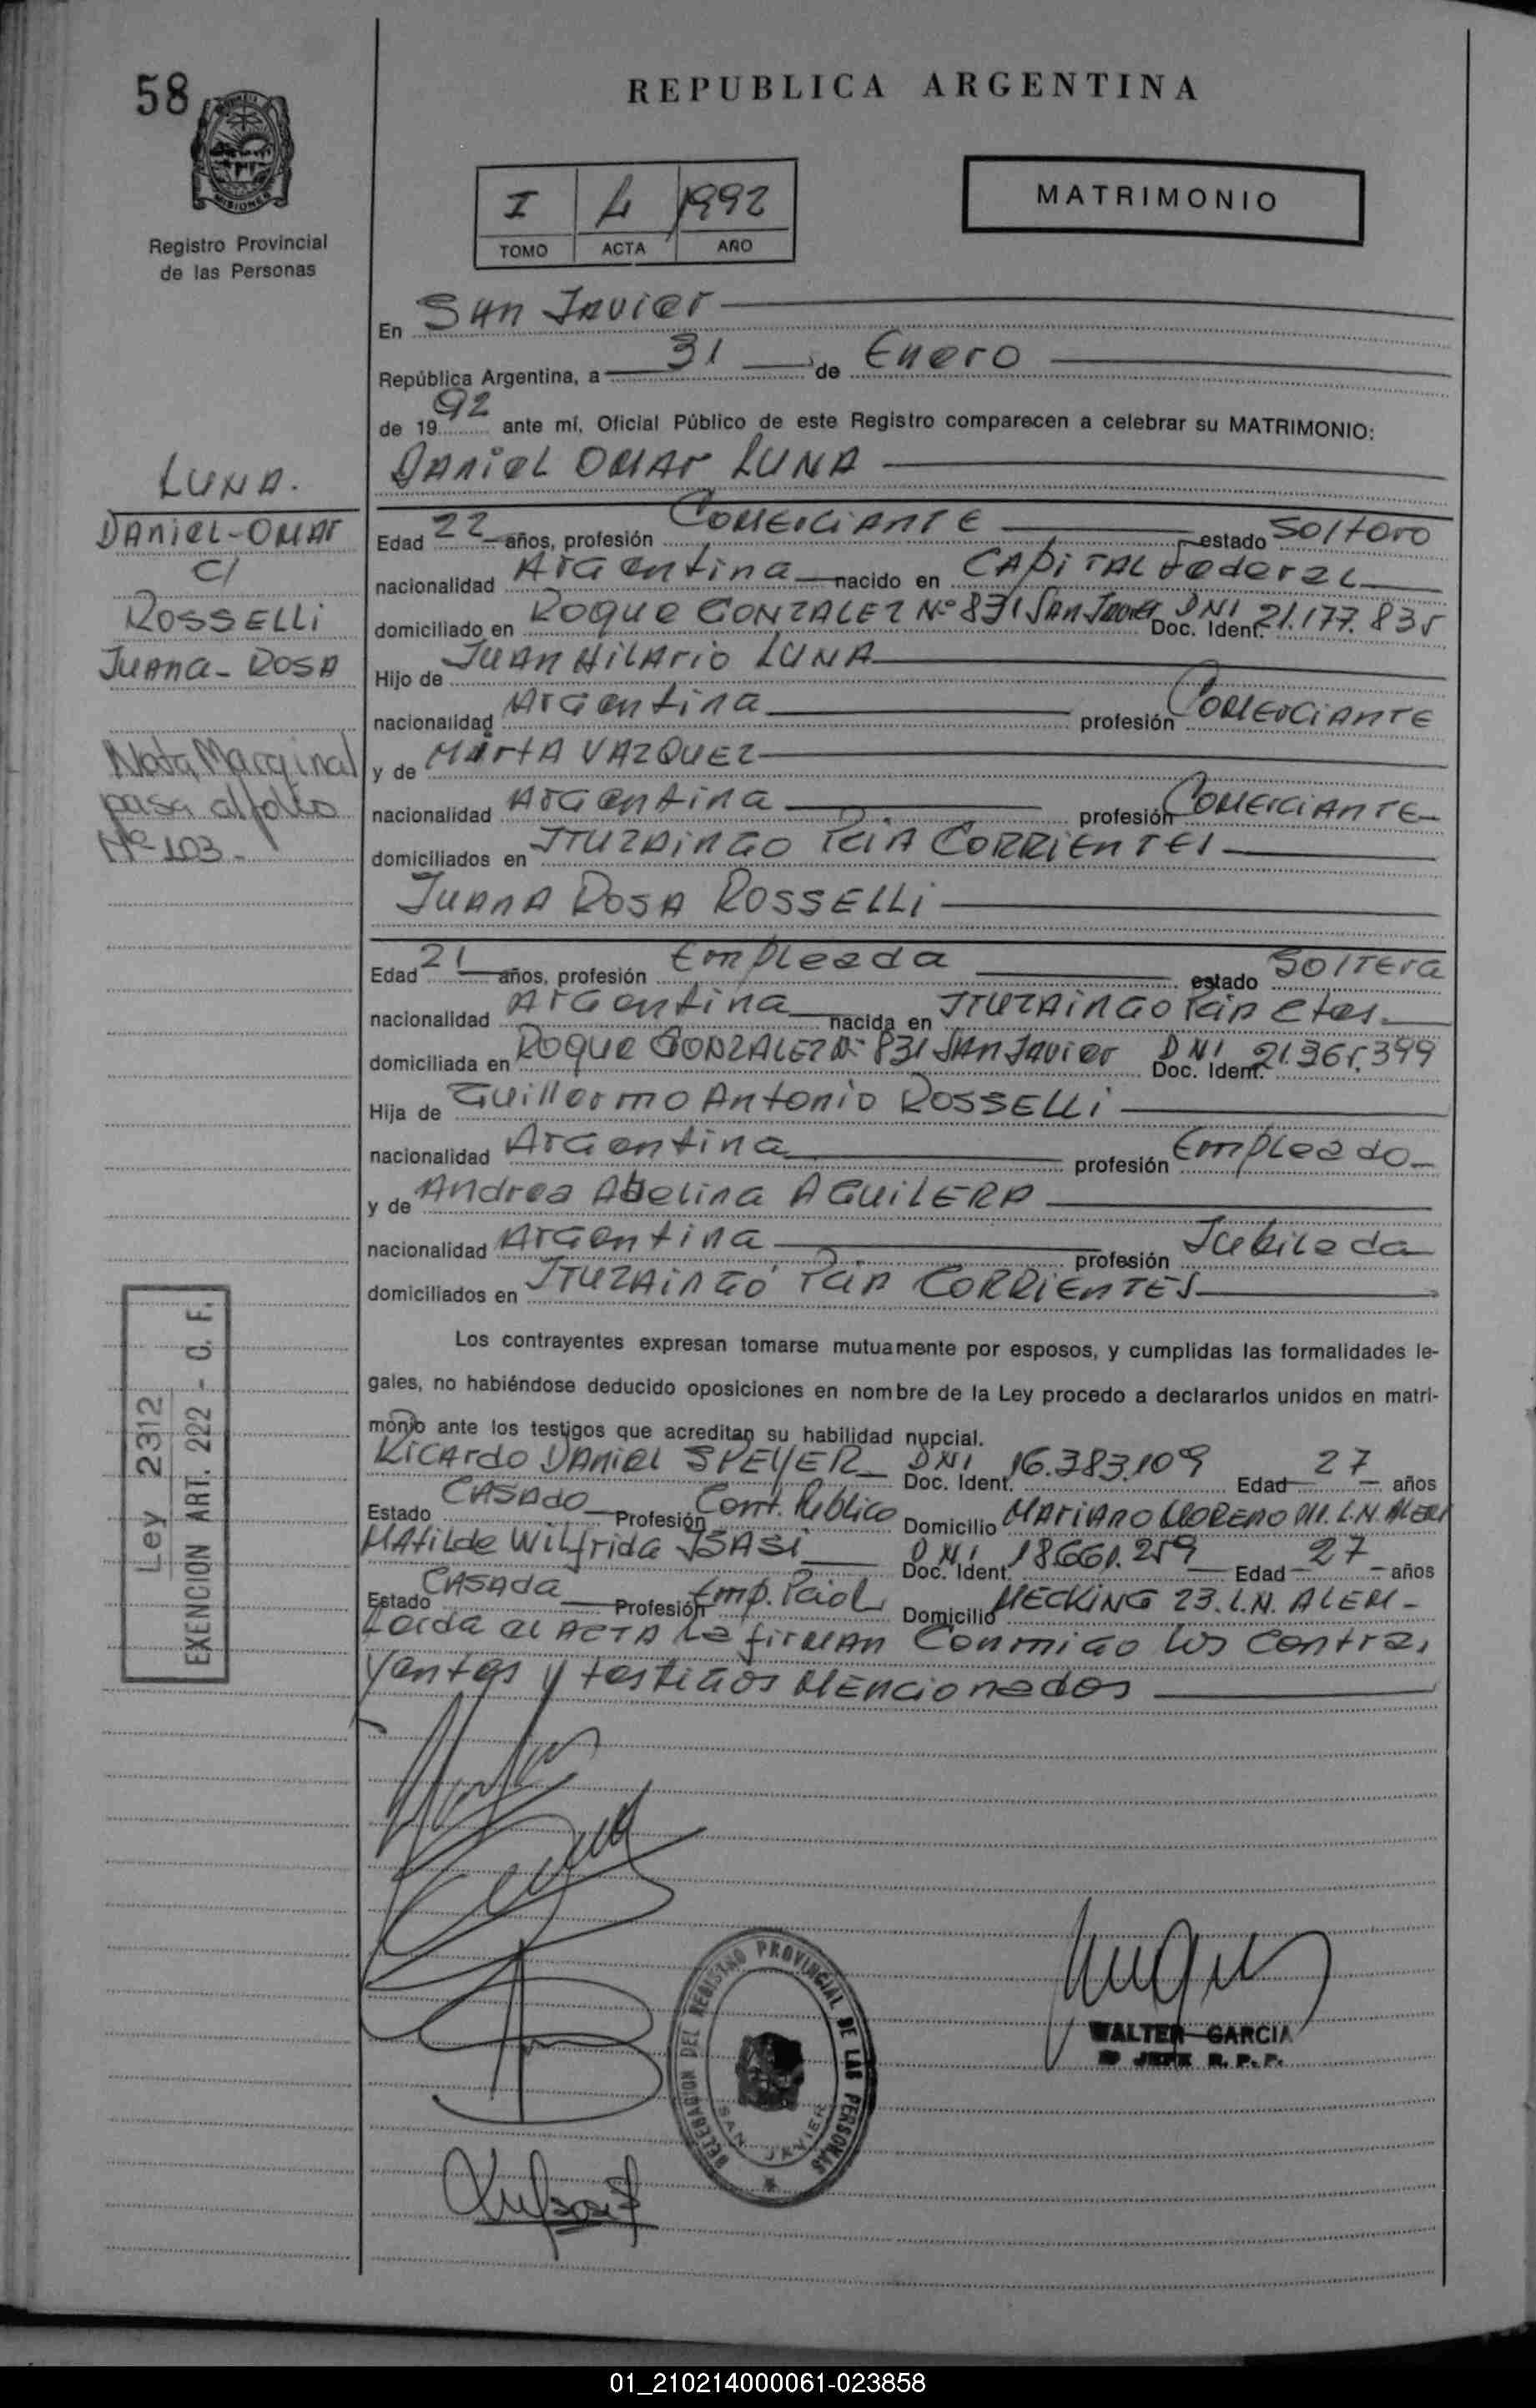 58
REPUBLICA ARGENTINA
MISIONES
Registro Provincial
de las Personas
I 4 1992
TOMO ACTA AÑO
MATRIMONIO
En San Javier
República Argentina, a 31 de Enero
de 1992 ante mí, Oficial Público de este Registro comparecen a celebrar su MATRIMONIO:
Daniel Omar LUNA
Edad 22 años, profesión Comerciante estado Soltero
nacionalidad Argentina nacido en Capital Federal
domiciliado en Roque Gonzalez Nº 831 San Javier Doc. Ident. DNI 21.177.835
Hijo de Juan Hilario LUNA
nacionalidad Argentina profesión Comerciante
y de Marta VAZQUEZ
nacionalidad Argentina profesión Comerciante
domiciliados en Ituzaingo Pcia Corrientes
Juana Rosa ROSSELLI
Edad 21 años, profesión Empleada estado Soltera
nacionalidad Argentina nacida en Ituzaingo Pcia Ctes.
domiciliada en Roque Gonzalez Nº 831 San Javier Doc. Ident. DNI 21.365.399
Hija de Guillermo Antonio ROSSELLI
nacionalidad Argentina profesión Empleado
y de Andrea Abelina AGUILERA
nacionalidad Argentina profesión Jubilada
domiciliados en Ituzaingó Pcia CORRIENTES
Los contrayentes expresan tomarse mutuamente por esposos, y cumplidas las formalidades le-
gales, no habiéndose deducido oposiciones en nombre de la Ley procedo a declararlos unidos en matri-
monio ante los testigos que acreditan su habilidad nupcial.
Ricardo Daniel SPEYER Doc. Ident. DNI 16.383.109 Edad 27 años
Estado Casado Profesión Cont. Público Domicilio Mariano Moreno L.N. Alem
Matilde Wilfrida ISASI Doc. Ident. DNI 18.661.259 Edad 27 años
Estado Casada Profesión Emp. Pcial Domicilio Mecking 23. L.N. Alem
Leida el Acta la firman conmigo los contra,
yentes y testigos mencionados
LUNA.
Daniel-Omar
c/
ROSSELLi
Juana-Rosa
Nota Marginal
pasa al folio
Nº 103.
Ley 2312
EXENCION ART. 222 - C. F.
DELEGACION DEL REGISTRO PROVINCIAL DE LAS PERSONAS
SAN JAVIER
WALTER GARCIA
JEFE R. P. P.
01_210214000061-023858